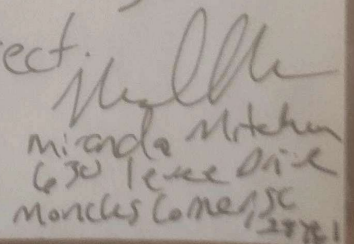 ect.
Miranda Mitchum
630 levee Drive
Moncks Corner, SC